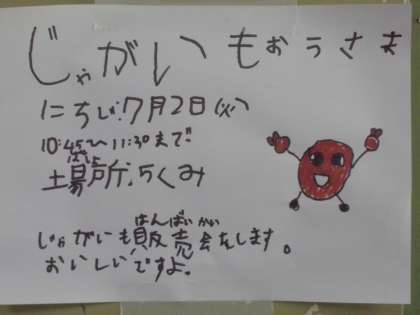 じゃがいもおうさま
にちじ:7月2日(火)
10:45〜11:30まで
ばしょ
場所:5くみ
はんばいかい
じゃがいも販売会をします。
おいしいですよ。